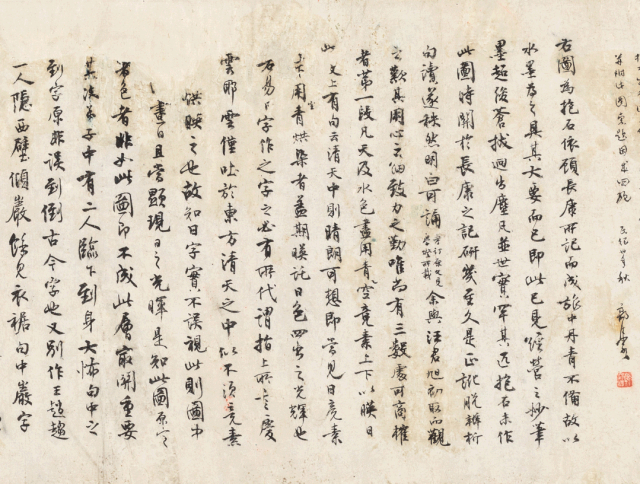 右圖為抱石依顧長康所記而成旅中丹青不備故以
水墨為之具其大要而已即此已見經營之妙筆
墨超俊蒼拔迥出塵凡並世實罕其匹抱石未作
此圖時關於長康之記研幾至久是正訛脫梳析
句讀遂秩然明白可誦余與汪君旭初取而觀
之歎其用心之細致力之勤唯尚有三數處可商榷
者第一段凡天及水色盡用青空竟素上下以暎日
此文上有句云清天中則晴朗可想即當見日竟素
亦用青烘染者蓋期暎託日色四出之光輝也
若易日字作之字之必有所代謂指上所言之慶
雲耶雲僅吐於東方清天之中似不須竟素
烘暎之也故知日字實不誤視此則圖中
畫日且當顯現日之光暉是知此圖原定
著色者非如此圖即不成此層最關重要
其次弟子中有二人臨下到身大怖句中之
到字原非誤到倒古今字也又別作王趙趨
一人隱西壁傾巖餘見衣裾句中巖字